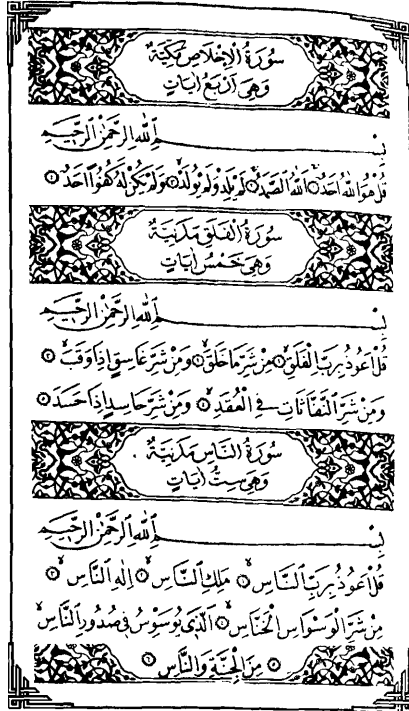 سُورَةُ الْإِخْلَاصِ مَكِّيَّةٌ
وَهِيَ أَرْبَعُ اٰيَاتٍ
بِسْمِ اللّٰهِ الرَّحْمٰنِ الرَّحِيمِ
قُلْ هُوَ اللّٰهُ اَحَدٌۚ ﴿١﴾ اَللّٰهُ الصَّمَدُۚ ﴿٢﴾ لَمْ يَلِدْ وَلَمْ يُولَدْۙ ﴿٣﴾ وَلَمْ يَكُنْ لَهُ كُفُوًا اَحَدٌ ﴿٤﴾
سُورَةُ الْفَلَقِ مَدَنِيَّةٌ
وَهِيَ خَمْسُ اٰيَاتٍ
بِسْمِ اللّٰهِ الرَّحْمٰنِ الرَّحِيمِ
قُلْ اَعُوذُ بِرَبِّ الْفَلَقِۙ ﴿١﴾ مِنْ شَرِّ مَا خَلَقَۙ ﴿٢﴾ وَمِنْ شَرِّ غَاسِقٍ اِذَا وَقَبَۙ ﴿٣﴾
وَمِنْ شَرِّ النَّفَّاثَاتِ فِي الْعُقَدِۙ ﴿٤﴾ وَمِنْ شَرِّ حَاسِدٍ اِذَا حَسَدَ ﴿٥﴾
سُورَةُ النَّاسِ مَدَنِيَّةٌ
وَهِيَ سِتُّ اٰيَاتٍ
بِسْمِ اللّٰهِ الرَّحْمٰنِ الرَّحِيمِ
قُلْ اَعُوذُ بِرَبِّ النَّاسِۙ ﴿١﴾ مَلِكِ النَّاسِۙ ﴿٢﴾ اِلٰهِ النَّاسِۙ ﴿٣﴾
مِنْ شَرِّ الْوَسْوَاسِ الْخَنَّاسِۙ ﴿٤﴾ اَلَّذِي يُوَسْوِسُ فِي صُدُورِ النَّاسِۙ
﴿٥﴾ مِنَ الْجِنَّةِ وَالنَّاسِ ﴿٦﴾